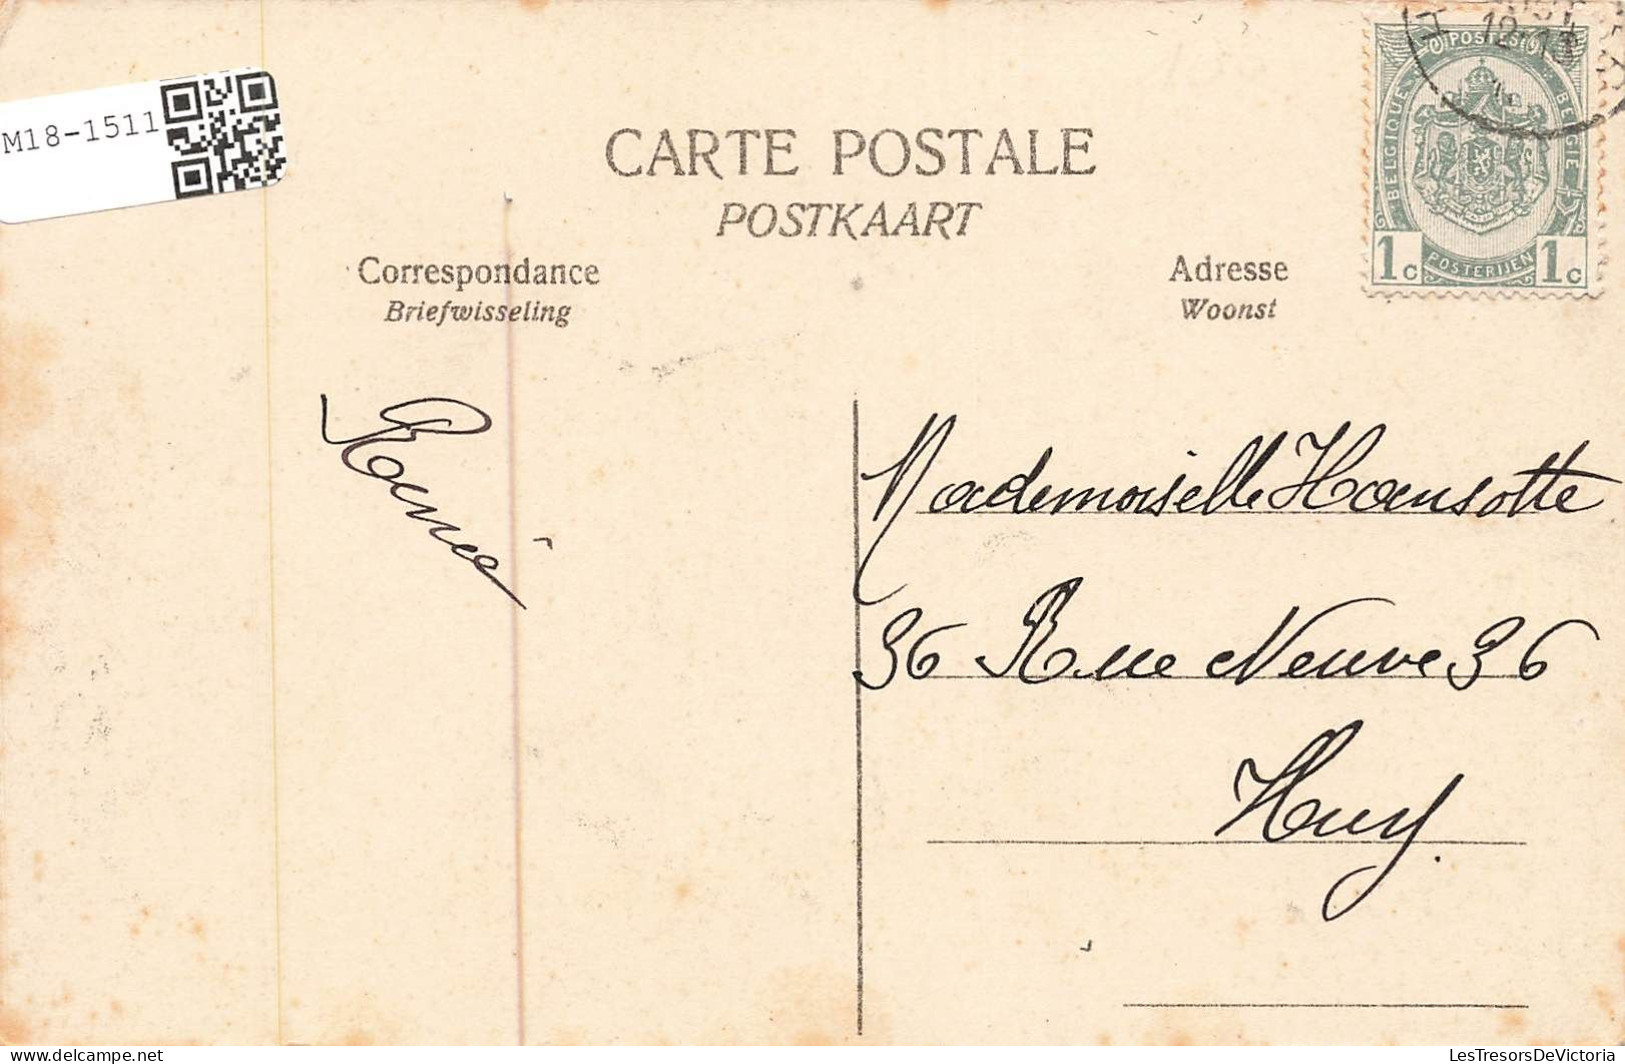 M18-1511
CARTE POSTALE
POSTKAART
Correspondance
Briefwisseling
Adresse
Woonst
POSTES
BELGIQUE
BELGIE
1c
POSTERIJEN
1c
Mademoiselle Hansotte
36 Rue Neuve 36
Huy.
LesTresorsDeVictoria